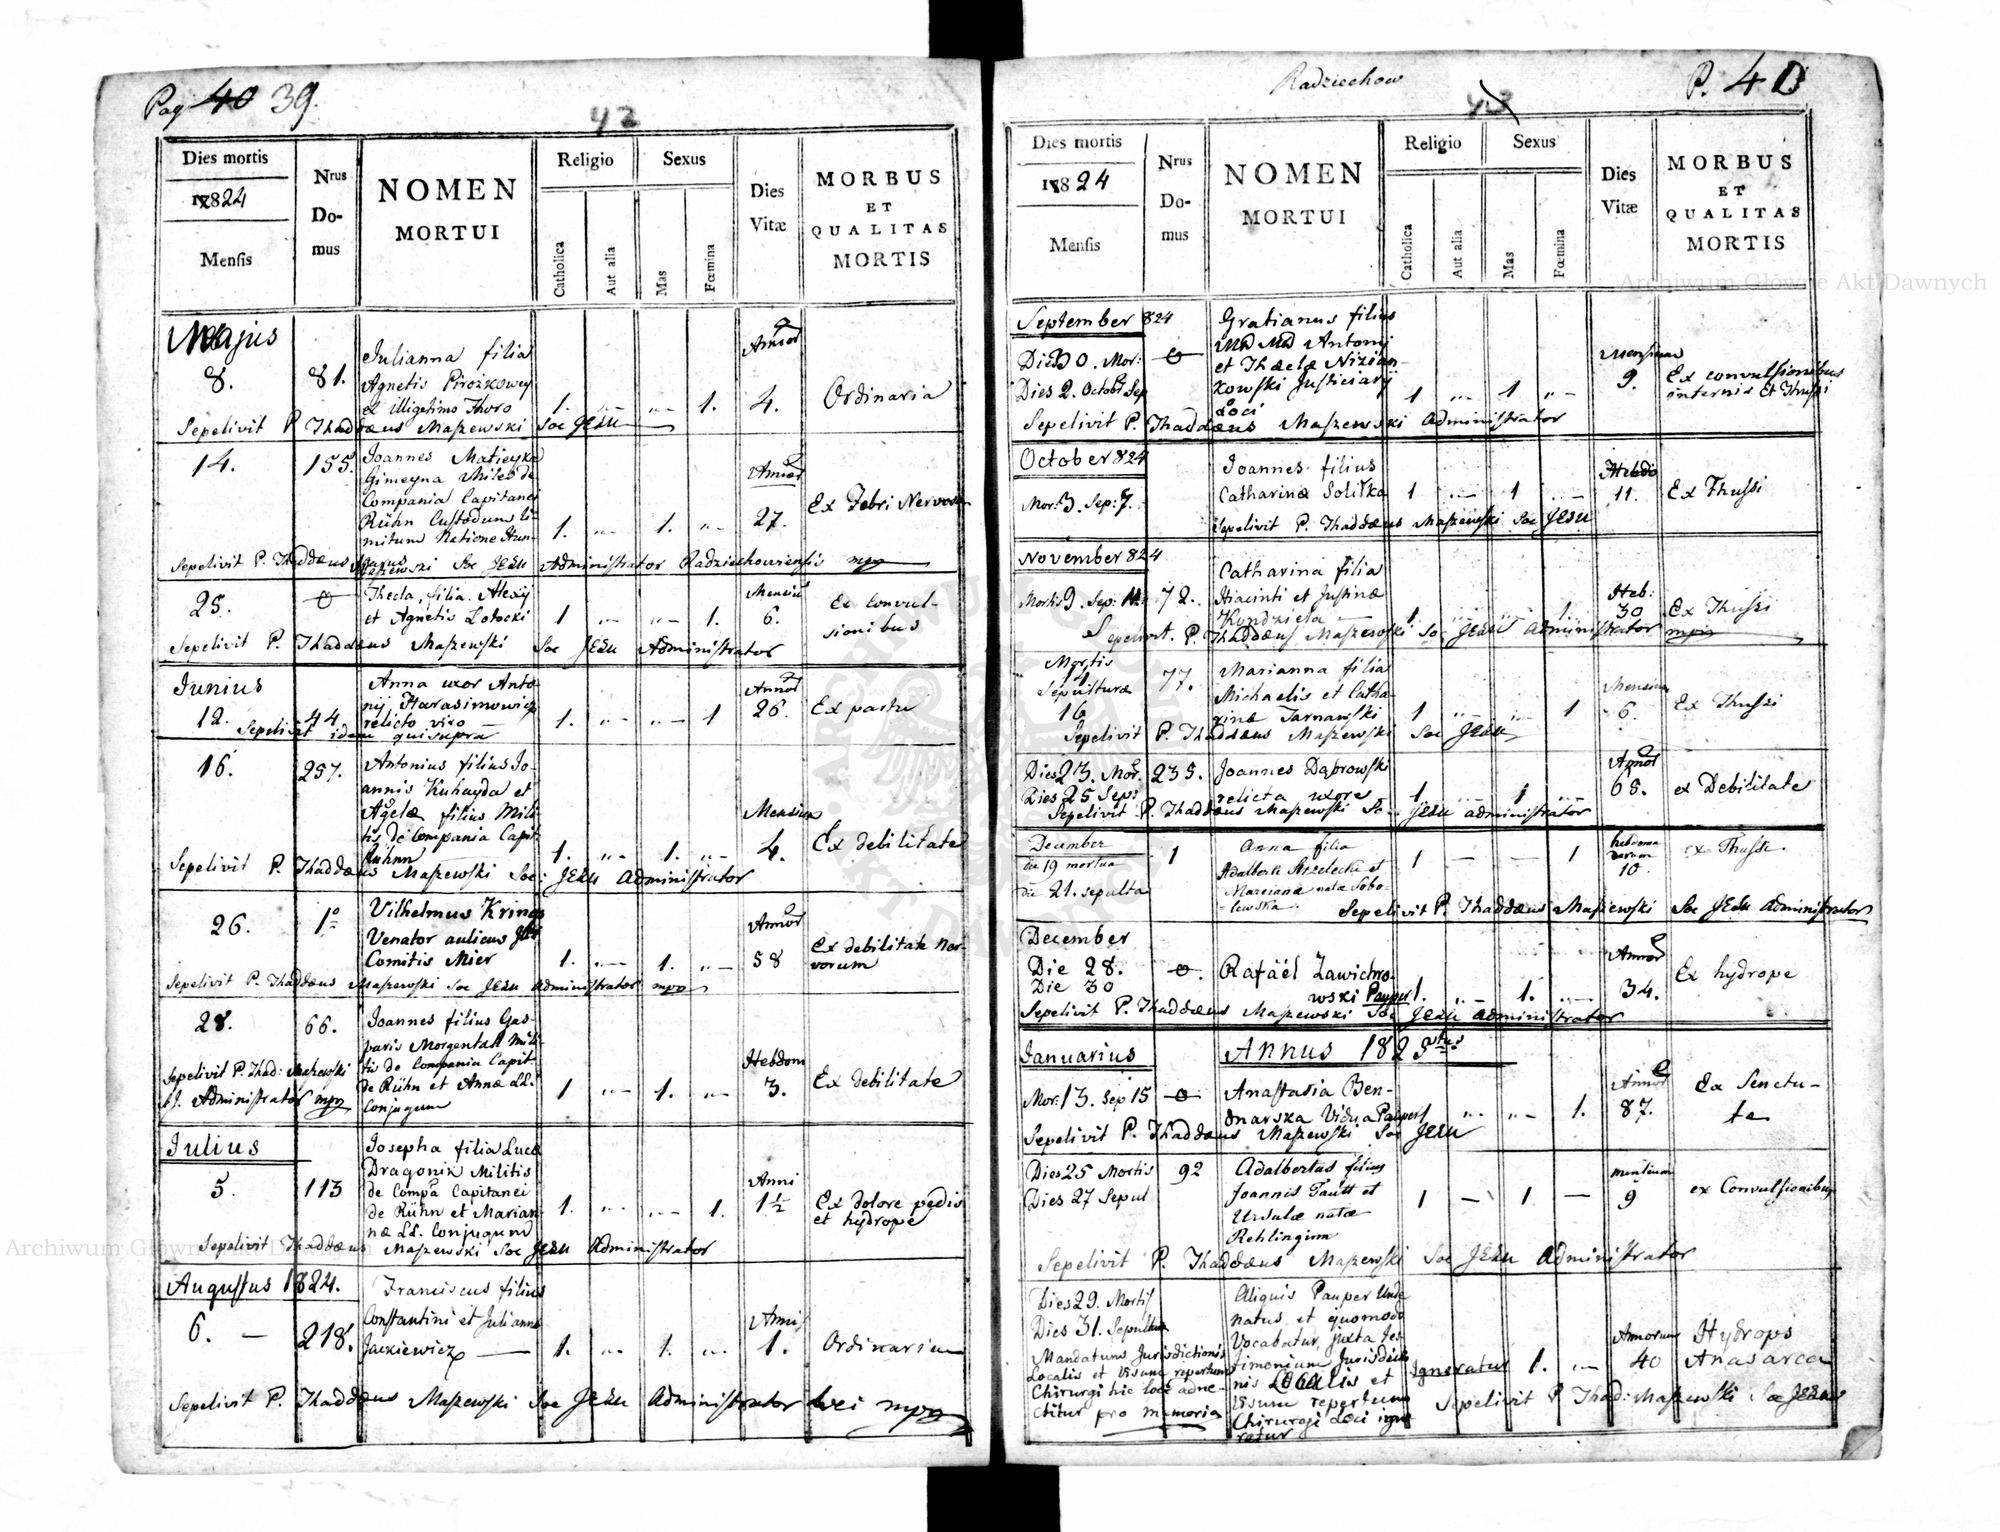 Pag 40 39.
42
Dies mortis
1824
Mensis
Nrus
Do-
mus
NOMEN
MORTUI
Religio
Catholica
Aut alia
Sexus
Mas
Fœmina
Dies
Vitæ
MORBUS
ET
QUALITAS
MORTIS
Majus
8.
81.
Julianna filia
Agnetis Pirożkowey
ex illigetimo Thoro
1. „ – „ – 1.
Annor
4.
Ordinaria
Sepelivit P Thaddæus Maszewski Soc JESU
14.
155.
Joannes Matieyka
Gimeyna Miles de
Compania Capitanei
Rühn Custodum Li-
mitum Natione Hun-
garus
1. „ – 1. „ –
Annor
27.
Ex Febri Nervosa
Sepelivit P. Thaddæus Maszewski Soc JESU Administrator Radziechoviensis mpp
25.
0
Thecla, filia Alexy
et Agnetis Lotocki
1 „ – „ – 1.
Mensiu
6.
Ex Convul-
sionibus
Sepelivit P. Thaddæus Maszewski Soc JESU Administrator
Junius
12.
44
Anna uxor Anto-
nij Harasimowicz
relicto viro
1. „ – „ – 1
Annor
26.
Ex partu
Sepelivit idem qui supra
16.
257.
Antonius filius Jo-
annis Kuhayda et
Agelæ filius Mili-
tis de Compania Capit
Rühnn
1. „ – 1. „ –
Mensium
4.
Ex debilitate
Sepelivit P. Thaddæus Maszewski Soc: JESU Administrator
26.
1º
Vilhelmus Krings
Venator aulicus
Comitis Mier
1. „ – 1. „ –
Annor
58
Ex debilitate Ner-
vorum
Sepelivit P. Thaddæus Maszewski Soc JESU Administrator mpp
28.
66.
Joannes filius Gas-
paris Morgentall Mili-
tis de Compania Capit
de Rühn et Annæ LL.
Conjugum
1 „ – 1. „ –
Hebdom
3.
Ex debilitate
Sepelivit P. Thad: Maszewski
SJ. Administrator mpp
Julius
5.
113
Josepha filia Lucæ
Dragonix Militis
de Compa Capitanei
de Rühn et Marian-
næ LL. Conjugum
1. „ – „ – 1.
Anni
1½
Ex dolore pedis
et hydrope
Sepelivit Thaddæus Maszewski Soc JESU Administrator
Augustus 1824.
6. –
218.
Franciscus filius
Constantini et Julianna
Jackiewicz
1. „ – 1. „ –
Anni
1.
Ordinarium
Sepelivit P. Thaddæus Maszewski Soc JESU Administrator loci mpp
Radziechow
P. 40
43
Dies mortis
1824
Mensis
Nrus
Do-
mus
NOMEN
MORTUI
Religio
Catholica
Aut alia
Sexus
Mas
Fœmina
Dies
Vitæ
MORBUS
ET
QUALITAS
MORTIS
September 824
Dies 30. Mor:
Dies 2. Octobr Sep
0
Gratianus filius
Antonij
et Thæclæ Nizian-
kowski Justiciarij
Loci
1 „ – 1 „ –
Mensium
9.
Ex convulsionibus
internis Et Thussi
Sepelivit P. Thaddæus Maszewski Administrator
October 824
Mor: 3. Sep: 7.
Joannes filius
Catharinæ Solitka
1 „ – 1 „ –
Hebdo
11.
Ex Thussi
Sepelivit P. Thaddæus Maszewski Soc JESU
November 824
Mortis 9. Sep: 11.
72.
Catharina filia
Hiacinti et Justinæ
Kondziela
1 „ – 1
Heb:
30
Ex Thussi
Sepelivit. P. Thaddæus Maszewski Soc JESU Administrator mpp
Mortis
14
Sepulturæ
16
77.
Marianna filia
Michaelis et Catha-
rinæ Tarnawski
1 „ – „ – 1
Mensium
6.
Ex Thussi
Sepelivit P. Thaddæus Maszewski Soc JESU
Dies 23. Mor.
Dies 25 Sepi
235.
Joannes Dąbrowski
relicta uxore
1 „ – 1 „ –
Annor
68.
ex Debilitate
Sepelivit P. Thaddæus Maszewski So JESU administrator
December
die 19 mortua
die 21. sepulta
1
Anna filia
Adalberti Strzelecki et
Marciana nata Sobo-
lewska
1 – – 1
hebdoma
darum
10.
ex Thussi.
Sepelivit P. Thaddæus Maszewski Soc JESU Administrator
December
Die 28.
Die 30
0
Rafäel Zawichro-
wski Pauper
1. „ – 1. „ –
Annor
34.
Ex hydrope
Sepelivit P. Thaddæus Maszewski Soc JESU administrator
Januarius
Annus 1825tus
Mor: 13. Sep 15
0
Anastasia Ben-
dnarska Vidua Pauper
1 „ – „ – 1.
Annor
87.
Ex Senctu-
te
Sepelivit P. Thaddæus Maszewski Soc JESU
Dies 25 Mortis
Dies 27 Sepul
92
Adalbertus filius
Joannis Tautt et
Ursulæ natæ
Rehlingim
1 – 1 –
mensium
9
ex Convulsionibus
Sepelivit P. Thaddæus Maszewski Soc JESU Administrator
Dies 29. Mortis
Dies 31. Sepultur
Mandatum Jurisdictionis
Localis et Visum repertum
Chirurgi hic loci adne-
ctitur pro memoria
Aliquis Pauper Unde
natus et quomodo
Vocabatur, juxta Tes-
timonium Jurisdictio
nis Localis et
Visum repertum
Chirurgi Loci igno
ratur
Ignoratur
1. „ –
Annorum
40
Hydrops
Anasarca
Sepelivit P Thad: Maszewski Soc JESUs
Archiwum Główne Akt Dawnych
Archiwum Główne Akt Dawnych
ARCHIWUM GŁÓWNE AKT DAWNYCH